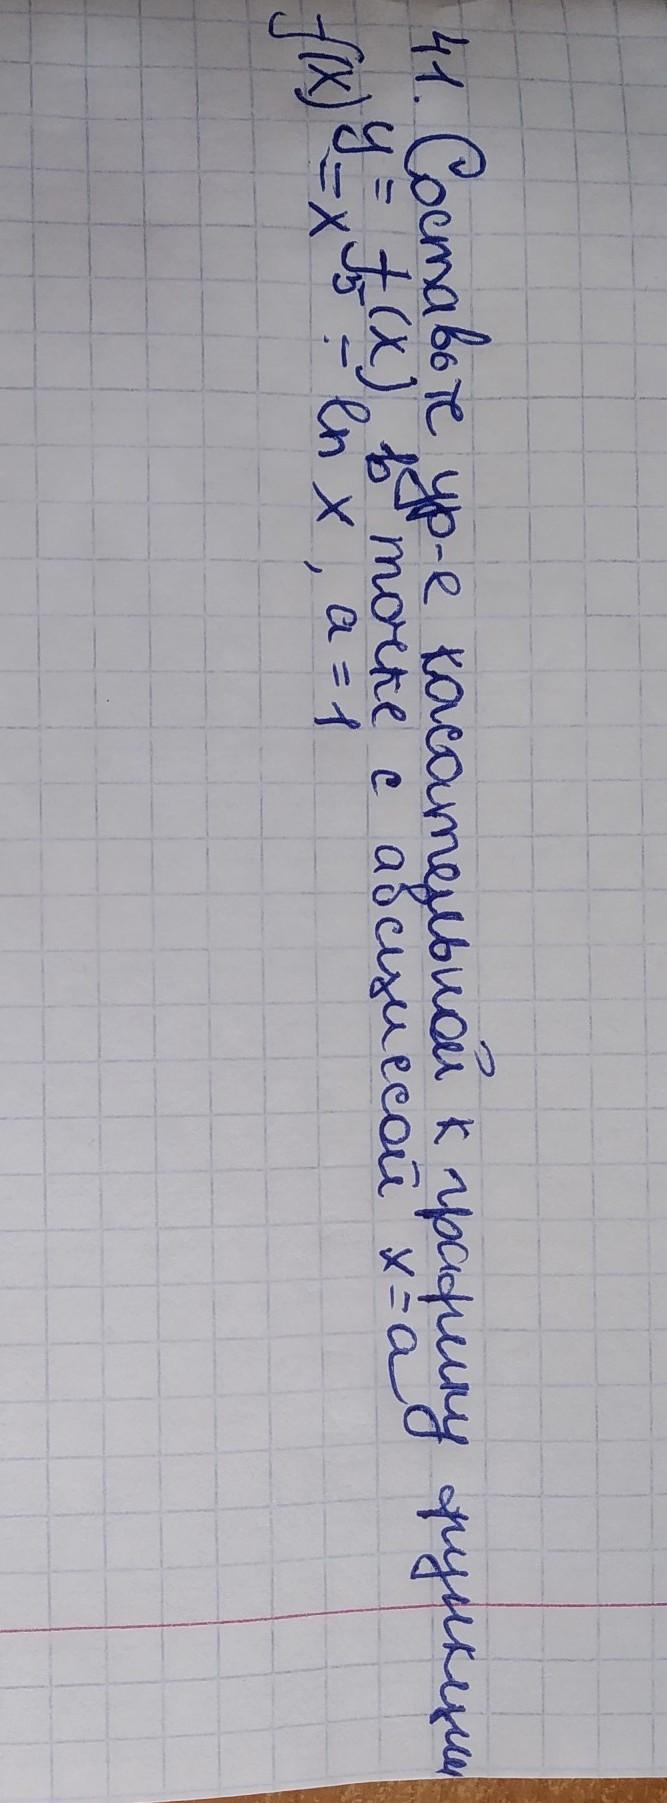 41. Составьте ур-е касательной к графику функции
y = f(x) в точке с абсциссой x=a
f(x) = x⁵ - ln x, a=1